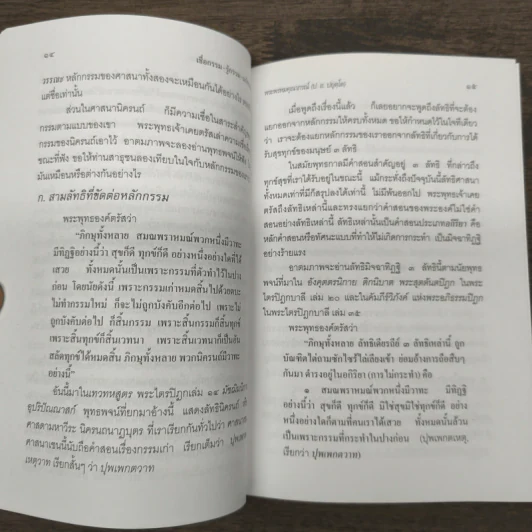 ๑๔
เชื่อกรรม-รู้กรรม
วรรณะ หลักกรรมของศาสนาทั้งสองจะเหมือนกันได้อย่างไร
แต่ชื่อเท่านั้น
ส่วนในศาสนานิครนถ์ ก็มีความเชื่อในสาระสำคัญ
กรรมตามแบบของเขา พระพุทธเจ้าเคยตรัสเล่าความเชื่อ
กรรมของนิครนถ์เอาไว้ อาตมภาพจะลองอ่านพุทธพจน์ให้ฟัง
ขณะที่ฟัง ขอให้ท่านสาธุชนลองเทียบในใจกับหลักกรรมของเรา
มันเหมือนหรือต่างกันอย่างไร
ก. สามลัทธิที่ขัดต่อหลักกรรม
พระพุทธองค์ตรัสว่า
“ภิกษุทั้งหลาย สมณพราหมณ์พวกหนึ่งมีวาทะ
มีทิฏฐิอย่างนี้ว่า สุขก็ดี ทุกข์ก็ดี อย่างหนึ่งอย่างใดที่ได้
เสวย ทั้งหมดนั้นเป็นเพราะกรรมที่ตัวทำไว้ในปาง
ก่อน โดยนัยดังนี้ เพราะกรรมเก่าหมดสิ้นไปด้วยตบะ
ไม่ทำกรรมใหม่ ก็จะไม่ถูกบังคับอีกต่อไป เพราะไม่
ถูกบังคับต่อไป ก็สิ้นกรรม เพราะสิ้นกรรมก็สิ้นทุกข์
เพราะสิ้นทุกข์ก็สิ้นเวทนา เพราะสิ้นเวทนาก็เป็นอัน
สลัดทุกข์ได้หมดสิ้น ภิกษุทั้งหลาย พวกนิครนถ์มีวาทะ
อย่างนี้”
อันนี้มาในเทวทหสูตร พระไตรปิฎกเล่ม ๑๔ มัชฌิมนิกาย
อุปริปัณณาสก์ พุทธพจน์ที่ยกมาอ้างนี้ แสดงลัทธินิครนถ์
ศาสดามหาวีระ นิครนถนาฏบุตร ที่เราเรียกกันทั่วไปว่า ศาสนา
ศาสนาเชนนี้นับถือคำสอนเรื่องกรรมเก่า เรียกเต็มว่า ปุพเพกต
เหตุวาท เรียกสั้นๆ ว่า ปุพเพกตวาท
พระพรหมคุณาภรณ์ (ป. อ. ปยุตฺโต)
๑๕
เมื่อพูดถึงเรื่องนี้แล้ว ก็เลยอยากจะพูดถึงลัทธิที่จะต้อง
แยกออกจากหลักกรรมให้ครบทั้งหมด ขอให้กำหนดไว้ในใจทีเดียว
ว่า เราจะต้องแยกหลักกรรมของเราออกจากลัทธิที่เกี่ยวกับการได้
รับสุขทุกข์ของมนุษย์ ๓ ลัทธิ
ในสมัยพุทธกาลมีคำสอนสำคัญอยู่ ๓ ลัทธิ ที่กล่าวถึง
ทุกข์สุขที่เราได้รับอยู่ในขณะนี้ แม้กระทั่งถึงปัจจุบันนี้ลัทธิศาสนา
ทั้งหมดเท่าที่มีก็สรุปลงได้เท่านี้ ไม่มีพ้นออกไป พระพุทธเจ้าเคย
ตรัสถึงลัทธิเหล่านี้และทรงแยกว่าคำสอนของพระองค์ไม่ใช่คำ
สอนอย่างลัทธิเหล่านี้ ลัทธิเหล่านั้นเป็นคำสอนประเภทอกิริยา คือ
หลักคำสอนหรือทัศนะแบบที่ทำให้ไม่เกิดการกระทำ เป็นมิจฉาทิฏฐิ
อย่างร้ายแรง
อาตมภาพจะอ่านลัทธิมิจฉาทิฏฐิ ๓ ลัทธินี้ตามนัยพุทธ
พจน์ที่มาใน อังคุตตรนิกาย ติกนิบาต พระสุตตันตปิฎก ใน
พระไตรปิฎกบาลี เล่ม ๒๐ และในคัมภีร์วิภังค์ แห่งพระอภิธรรมปิฎก
ในพระไตรปิฎกบาลี เล่ม ๓๕
พระพุทธองค์ตรัสว่า
“ภิกษุทั้งหลาย ลัทธิเดียรถีย์ ๓ ลัทธิเหล่านี้ ถูก
บัณฑิตไต่ถามซักไซร้ไล่เลียงเข้า ย่อมอ้างการถือสืบๆ
กันมา ดำรงอยู่ในอกิริยา (การไม่กระทำ) คือ
๑ สมณพราหมณ์พวกหนึ่งมีวาทะ มีทิฏฐิ
อย่างนี้ว่า สุขก็ดี ทุกข์ก็ดี มิใช่สุขมิใช่ทุกข์ก็ดี อย่าง
หนึ่งอย่างใดก็ตามที่คนเราได้เสวย ทั้งหมดนั้นล้วน
เป็นเพราะกรรมที่กระทำไว้ในปางก่อน (ปุพเพกตเหตุ,
เรียกว่า ปุพเพกตวาท)